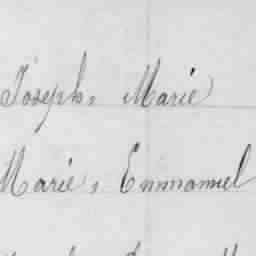 Joseph, Marie
Marie, Emmanuel